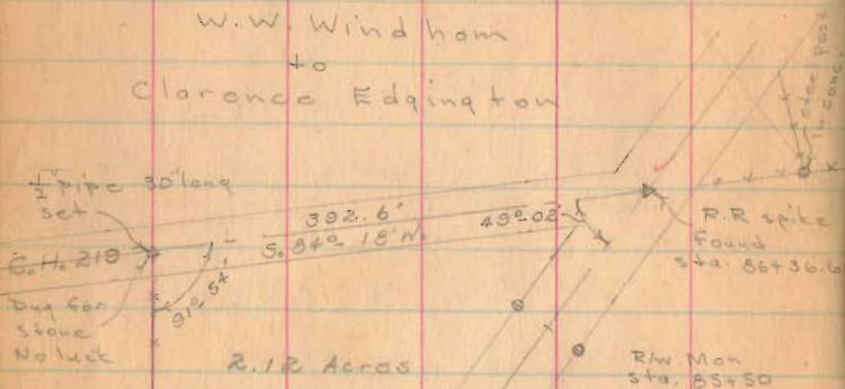 W.W. Windhom
to
Clarence Edgington
steel post
in conc.
1/2" pipe 30" long
set
392.6'
49°-02'
R.R spike
found
sta. 86+36.6
C.H. 219
S. 84°-18' W.
91°-54'
Dug for
stone
No luck
2.12 Acres
R/W Mon
sta. 85+50